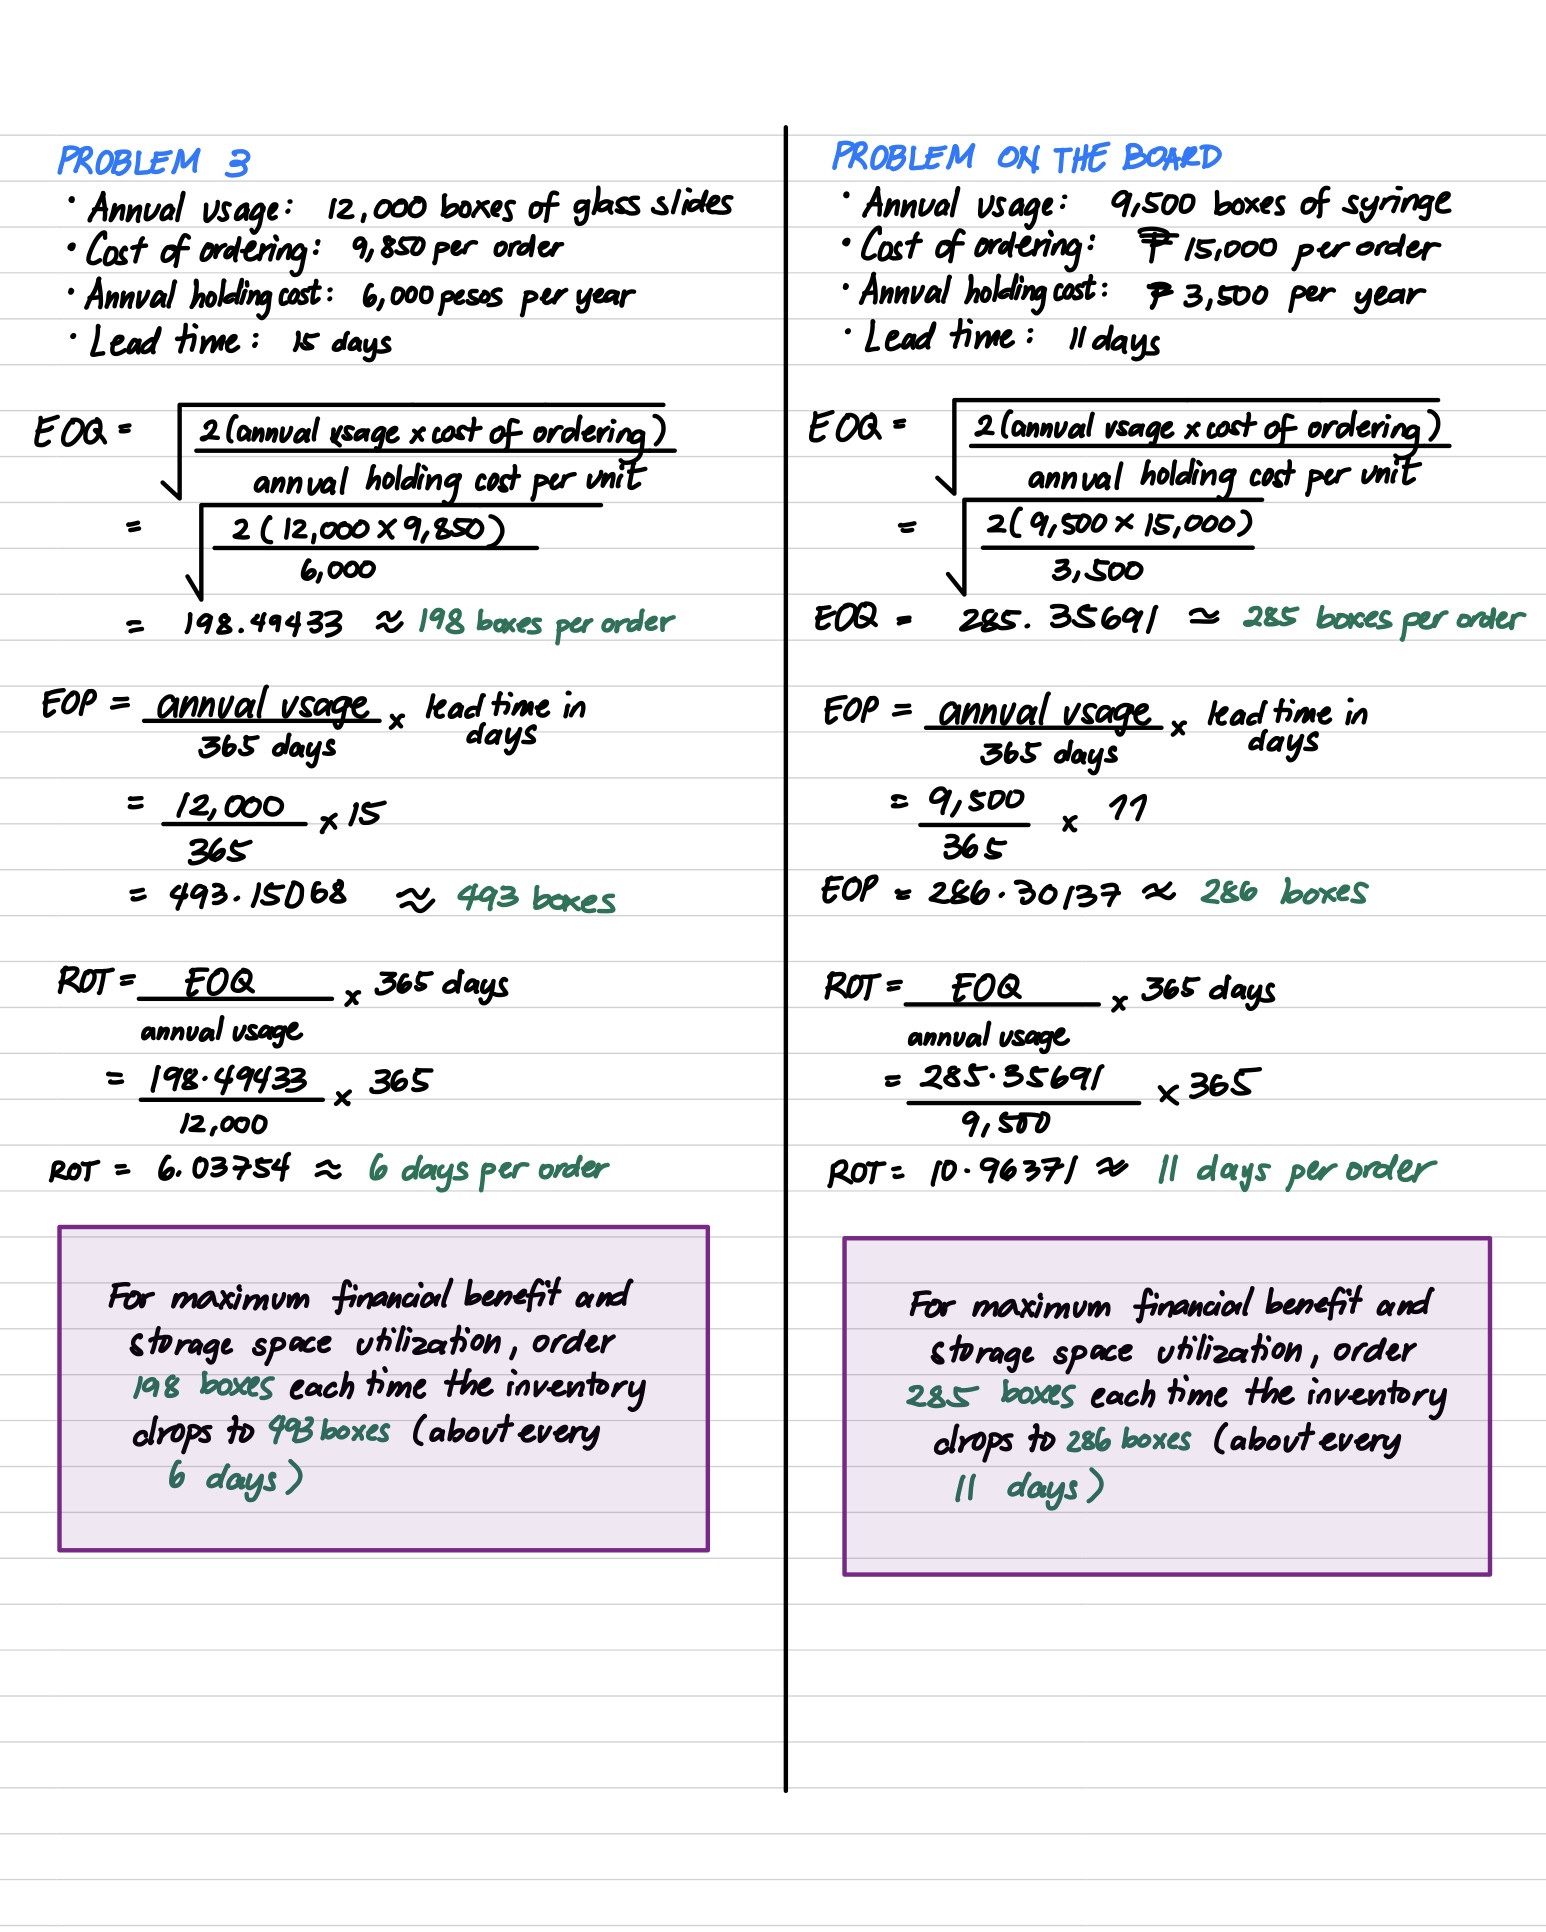 PROBLEM 3
• Annual usage: 12,000 boxes of glass slides
• Cost of ordering: 9,850 per order
• Annual holding cost: 6,000 pesos per year
• Lead time: 15 days
EOQ = √ 2 (annual usage x cost of ordering)
annual holding cost per unit
= √ 2 (12,000 x 9,850)
6,000
= 198.49433 ≈ 198 boxes per order
EOP = annual usage x lead time in
365 days days
= 12,000 x 15
365
= 493.15068 ≈ 493 boxes
ROT = EOQ x 365 days
annual usage
= 198.49433 x 365
12,000
ROT = 6.03754 ≈ 6 days per order
For maximum financial benefit and
storage space utilization, order
198 boxes each time the inventory
drops to 493 boxes (about every
6 days)
PROBLEM ON THE BOARD
• Annual usage: 9,500 boxes of syringe
• Cost of ordering: ₱ 15,000 per order
• Annual holding cost: ₱ 3,500 per year
• Lead time: 11 days
EOQ = √ 2 (annual usage x cost of ordering)
annual holding cost per unit
= √ 2 (9,500 x 15,000)
3,500
EOQ = 285.35691 ≈ 285 boxes per order
EOP = annual usage x lead time in
365 days days
= 9,500 x 11
365
EOP = 286.30137 ≈ 286 boxes
ROT = EOQ x 365 days
annual usage
= 285.35691 x 365
9,500
ROT = 10.96371 ≈ 11 days per order
For maximum financial benefit and
storage space utilization, order
285 boxes each time the inventory
drops to 286 boxes (about every
11 days)